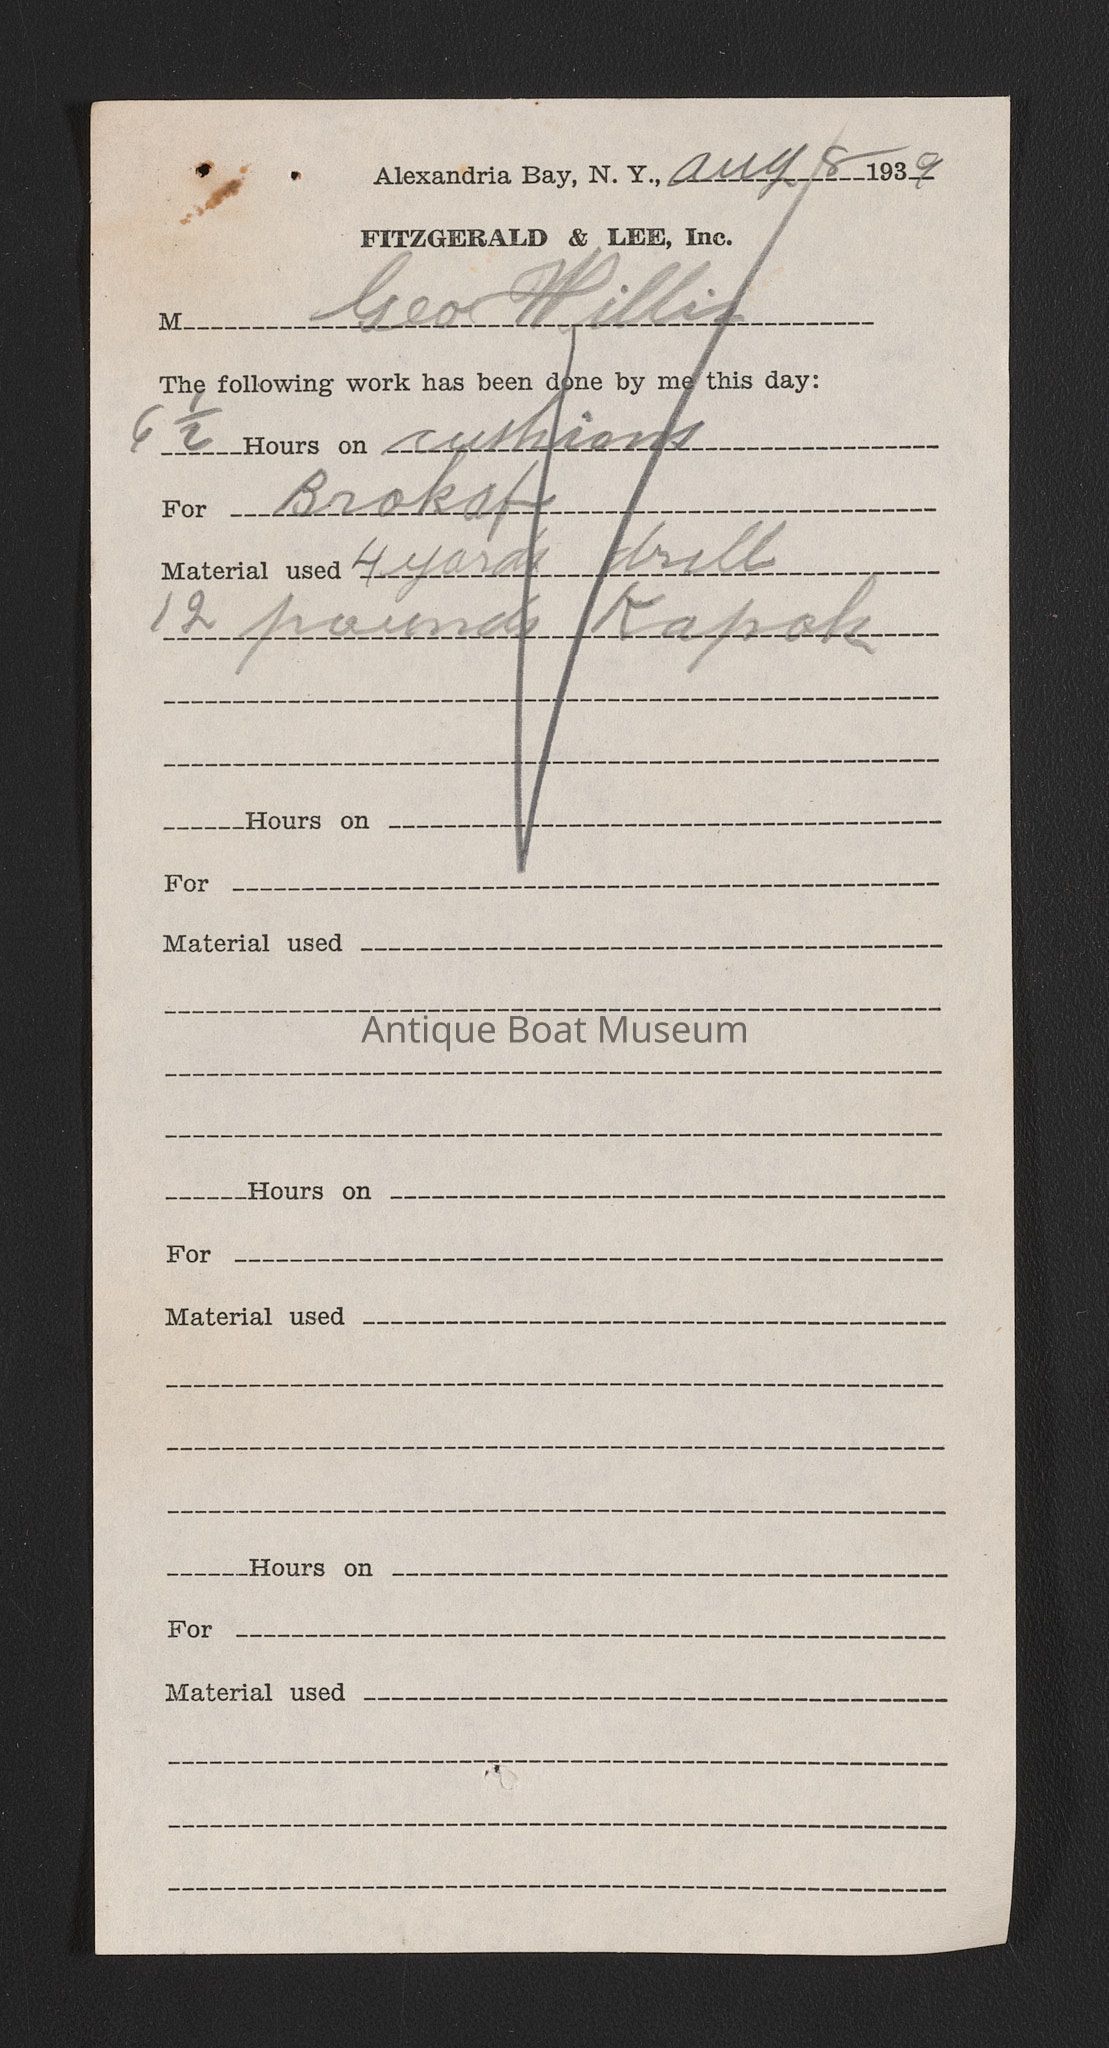 Alexandria Bay, N. Y., Aug 8 1939
FITZGERALD & LEE, Inc.
M Geo Willis
The following work has been done by me this day:
6 1/2 Hours on cushions
For
Material used 4 yards drill
12 pounds Kapok
Hours on
For
Material used
Antique Boat Museum
Hours on
For
Material used
Hours on
For
Material used